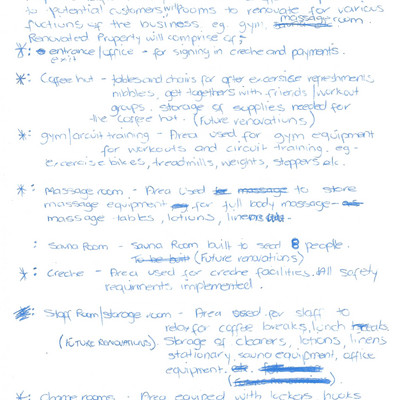 to potential customers, with rooms to renovate for various
fuctions of the business. eg. gym, massage room.
Renovated Property will comprise of;
*: entrance/office - for signing in creche and payments.
exit
*: Coffee hut - tables and chairs for after excersise refreshments
nibbles, get togethers with friends/workout
groups. Storage of supplies needed for
the coffee hut. (Future renovations)
*: gym/circuit training - Area used for gym equipment
for workouts and circuit training. eg-
excercise bikes, treadmills, weights, steppers etc.
*: Massage room - Area used to store
massage equipment for full body massage-
massage tables, lotions, linens
: Sauna Room - Sauna Room built to seat 8 people.
To be built (Future renovations)
*: Creche - Area used for creche facilities. All safety
requirments implemented.
: Staff Room/storage room - Area used for staff to
relax for coffee breaks, lunch
(FUTURE RENOVATIONS). Storage of cleaners, lotions, linens
stationary, sauna equipment, office
equipment.
*: Change rooms - Area equiped with lockers hooks